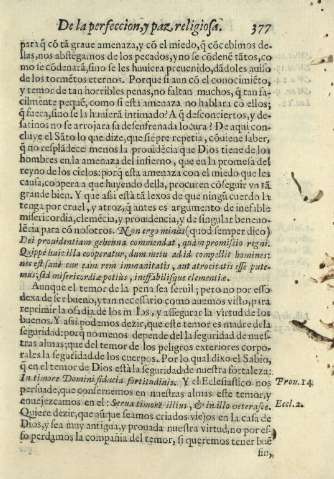 De la perfeccion, y paz religiosa. 377
para q̃ cõ tã graue amenaza, y cõ el miedo, q̃ cõcebimos de-
llas, nos abstẽgamos de los pecados, y no se codenẽ tãtos, co
mo se cõdenarã, sino se les huuiera preuenido, dãdoles auiso
de los tormẽtos eternos. Porque si aun cõ el conocimiẽto,
y temor de tan horribles penas, no faltan muchos, q̃ tan fa-
cilmente pequẽ, como si esta amenaza no hablara cõ ellos;
q̃ fuera, sino se la huuierã intimado? A q̃ desconciertos, y de-
satinos no se arrojara su desenfrenada locura? De aqui con-
cluye el Sãto lo que dize, que siẽpre repetia, cõuiene saber,
q̃ no resplãdece menos la prouidẽcia que Dios tiene de los
hombres en la amenaza del infierno, que en la promesa del
reyno de los cielos: porq̃ esta amenaza con el miedo que les
causa, coopera a que huyendo della, procuren cõseguir vn tã
grande bien. Y que assi estã tã lexos de que ningũ cuerdo la
tenga por cruel, y atroz, q̃ antes es argumento de inefable
misericordia, clemẽcia, y prouidencia, y de singular beneuo-
lẽcia para cõ nosotros. Non ergo minùs (quod semper dico)
Dei prouidentiam gehenna commendat, quàm promissio regni.
Quippè huic illa cooperatur, dum metu ad id compellit homines:
non est sanè cur eam rem immanitatis, aut atrocitatis esse pute-
mus; sed misericordiæ potius, ineffabilisque clementiæ.
Aunque el temor de la pena sea seruil; pero no por esso
dexa de ser bueno, y tan necessario como auemos visto, para
reprimir la osadia de los malos, y assegurar la virtud de los
buenos. Y assi podemos dezir, que este temor es madre de la
seguridad: porq̃ no menos depende del la seguridad de nues-
tras almas; que del temor de los peligros exteriores corpo-
rales la seguridad de los cuerpos. Por lo qual dixo el Sabio,
q̃ en el temor de Dios està la seguridad de nuestra fortaleza:
In timore Domini fiducia fortitudinis. Y el Eclesiastico nos Prou. 14.
persuade, que conseruemos en nuestras almas este temor, y
enuejezcamos en el: Serua timorem illius, & in illo veterasce. Eccl. 2.
Quiere dezir, que aũque seamos criados viejos en la casa de
Dios, y sea muy antigua, y prouada nuestra virtud, no por es-
so perdamos la compañia del temor, si queremos tener buẽ
fin,